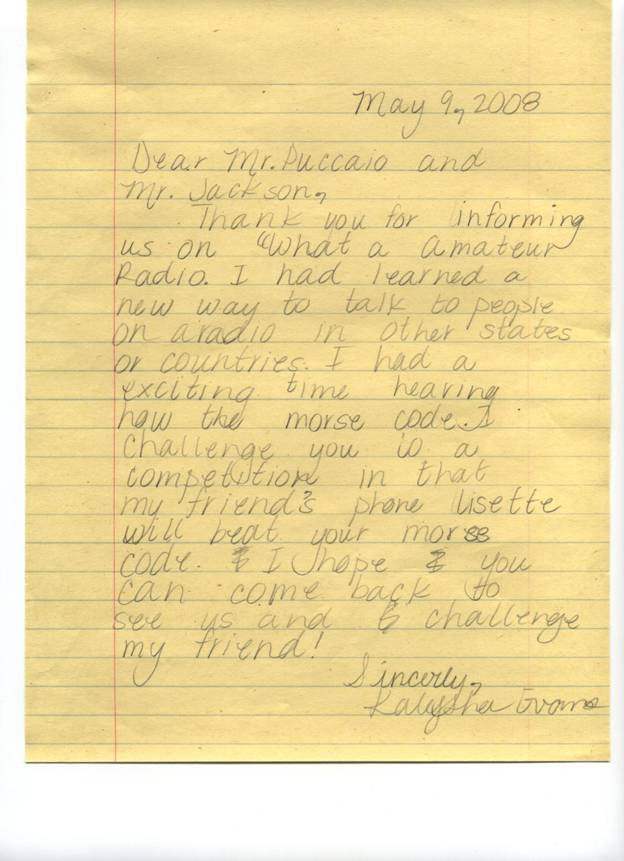 May 9, 2008
Dear Mr. Puccaio and
Mr. Jackson,
Thank you for informing
us on "What a amateur
Radio. I had learned a
new way to talk to people
on a radio in other states
or countries. I had a
exciting time hearing
how the morse code. I
challenge you to a
competition in that
my friend's phone lisette
will beat your morse
code. I hope you
can come back to
see us and challenge
my friend!
Sincerly,
Evans